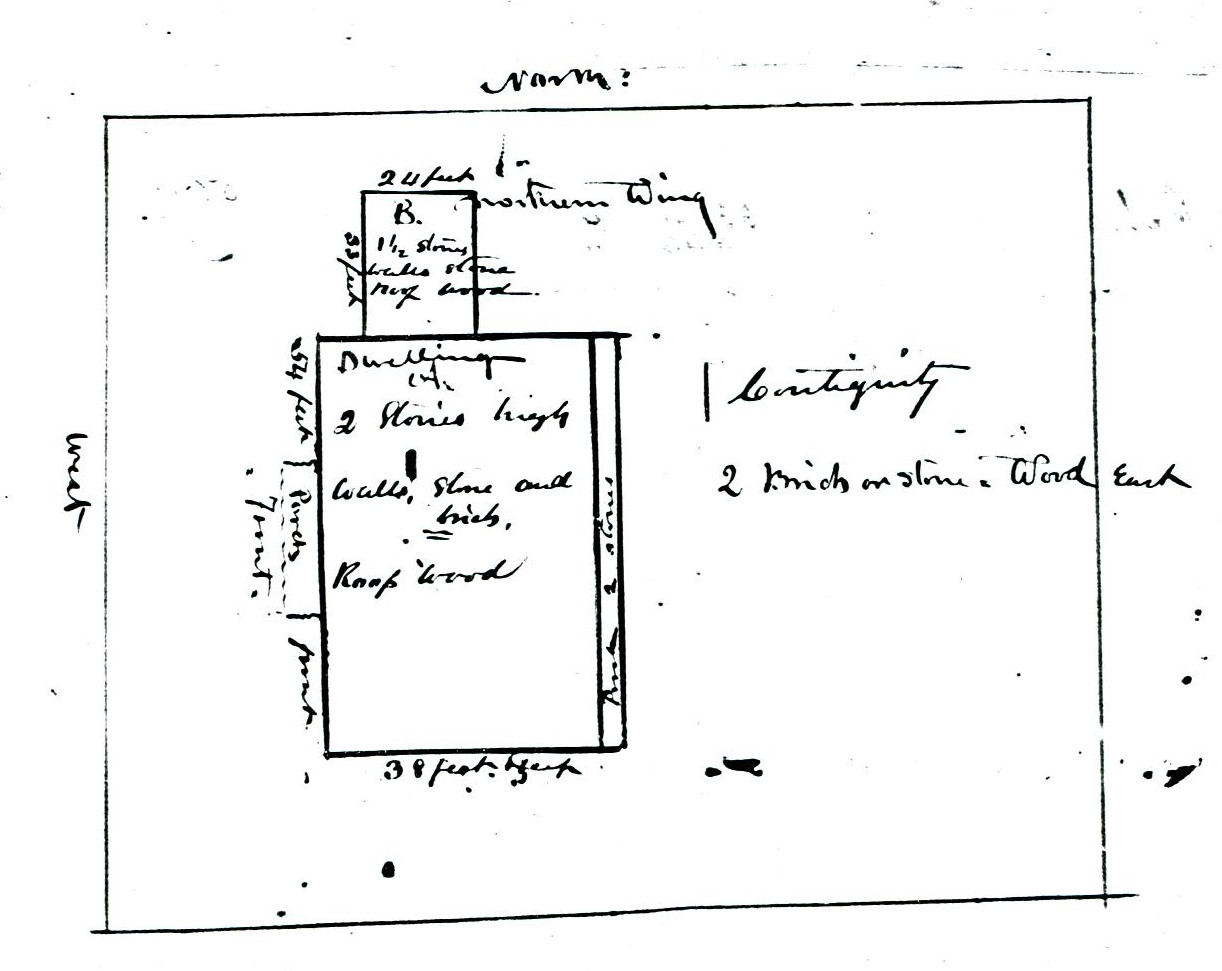 North:
24 feet
Northern Wing
B.
1 1/2 stories
walls stone
roof wood
33 feet
Dwelling
2 Stories high
Walls, stone and
brick.
Roof wood
54 feet
Porch
front.
front
Porch 2 stories
38 feet. deep
West
Contiguity
2 Brick or stone = Wood
East